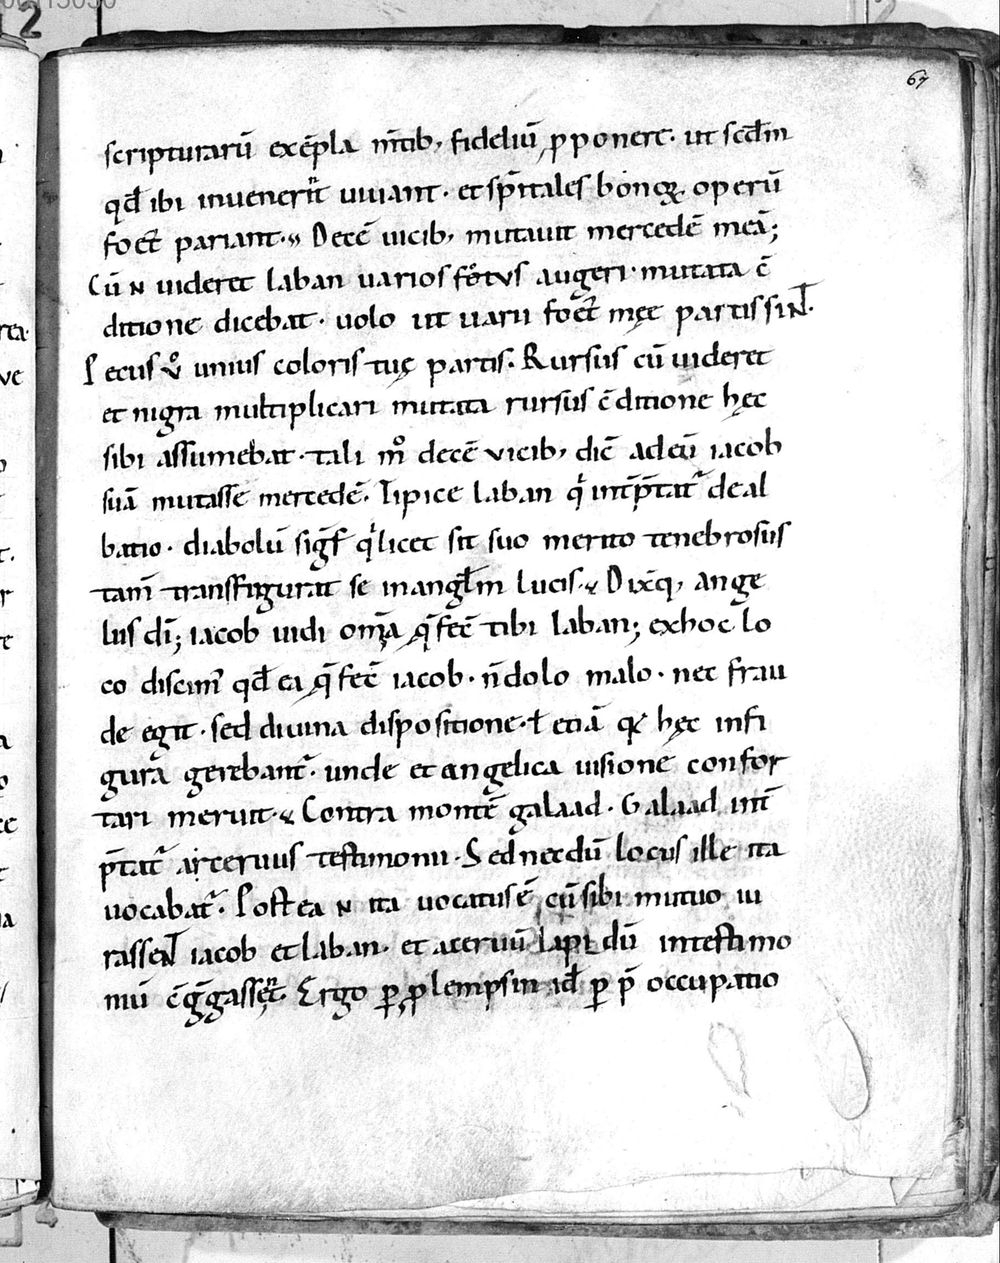 67
scripturarū exēpla m̄tib, fidelium̄ ꝓponere. ut scd̄m
qd̄ ibi inuener̄t uiuant. et sp̄itales bonoꝝ operū
foet᷒ pariant. Decē uicib, mutauit mercedē meā;
Cū ɴ uideret laban uarios foetus augeri. mutata c̄
ditione dicebat. uolo ut uarii foet᷒ męę partis sint.
Pecus ů unius coloris tuę partis. Rursus cū uideret
et nigra multiplicari mutata rursus c̄ditione hęc
sibi assumebat. tali mͦ decē vicib, dic̄ ad eū iacob
suā mutasse mercedē. Tipice laban qͥ int̄p̄tat᷑ deal
batio. diabolū sigf̄ qͥ licet sit suo merito tenebrosus
tam̄ transfigurat se in angl̄m lucis. Dixitq, ange
lus dī; iacob uidi om̄a q̄ fec̄ tibi laban; ex hoc lo
co discim᷒ qd̄ ea q̄ fec̄ iacob. n̄ dolo malo. nec frau
de egit. sed diuina dispositione. ł etiā qͥ hęc in fi
gura gerebant᷑. unde et angelica uisione confor
tari meruit. Contra montē galaad. Galaad int̄
p̄tat᷑ aceruus testimonii. Sed necdū locus ille ita
uocabat᷑. Postea ɴ ita uocatus ē, cū sibi mutuo iu
rassent iacob et laban. et aceruū lapidū in testimo
niū c̄ḡgassent. Ergo ꝑ ꝓlempsin id ł ꝑ p̄occupatio